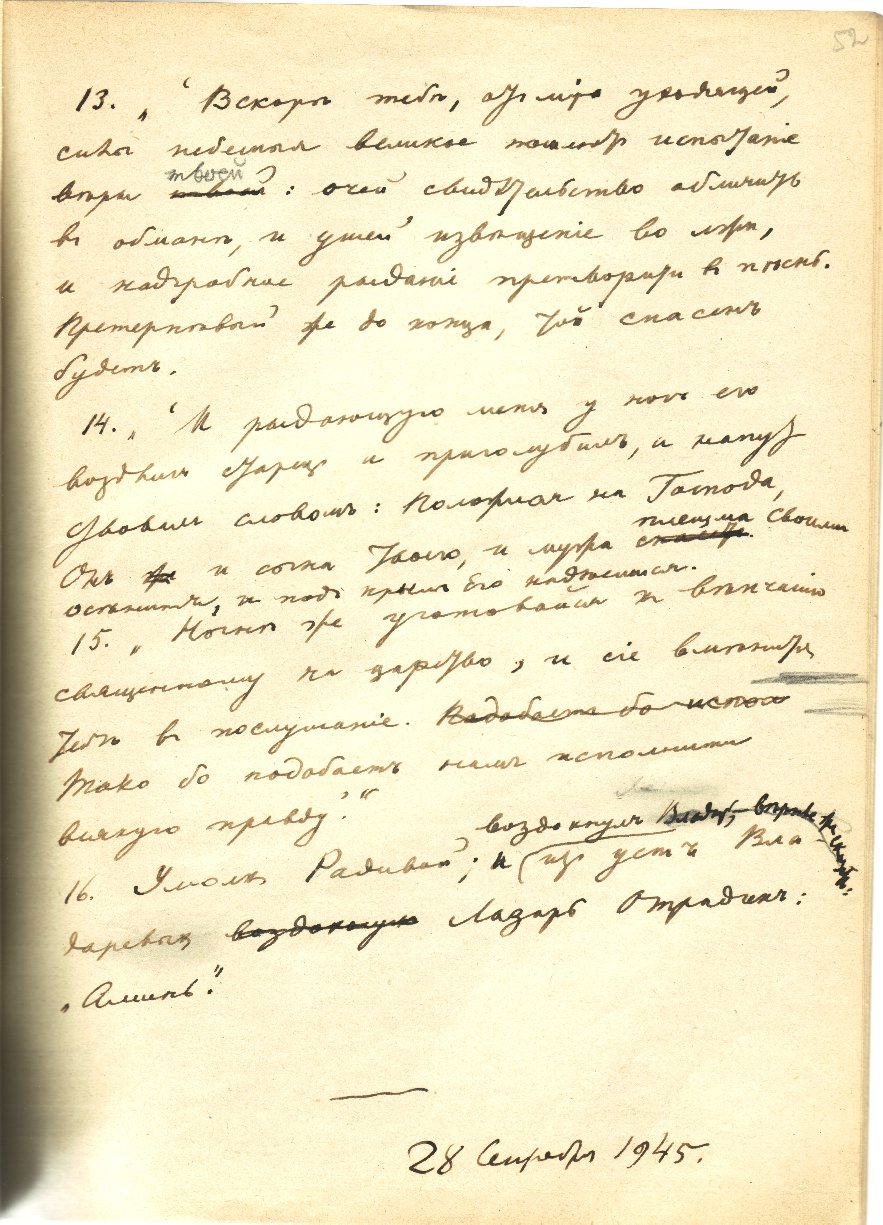 52
13. „ ‘ Вскорѣ тебѣ, отъ мiра уходящей,
силы небесныя великое пошлютъ испытанiе
твоей
вѣры твоей : очей свидѣтельство обличитъ
въ обманѣ, и ушей извѣщенiе во лжи,
и надгробное рыданiе претворитъ въ пѣснь.
Претерпѣвый же до конца, той спасенъ
будетъ.
14. „ ‘ И рыдающую меня у ногъ его
воздвигъ старецъ и приголубилъ, и напут
ствовалъ словомъ: Положися на Господа,
плещма своими
Онъ же и сына твоего, и мужа спасетъ.
осѣнитъ, и подъ крылѣ Его надѣешися.
15. „ Нынѣ же уготовайся къ вѣнчанiю
священному на царство, и сiе вмѣнится
тебѣ въ послушанiе. Подобаетъ бо испол
Тако бо подобаетъ намъ исполнити
всякую правду.’“
воздохнулъ
16. Умолкъ Радивой; и изъ устъ Вла-
даревыхъ воздохнулъ Лазарь Отрадинъ:
„Аминь“.
28 Сентября 1945.